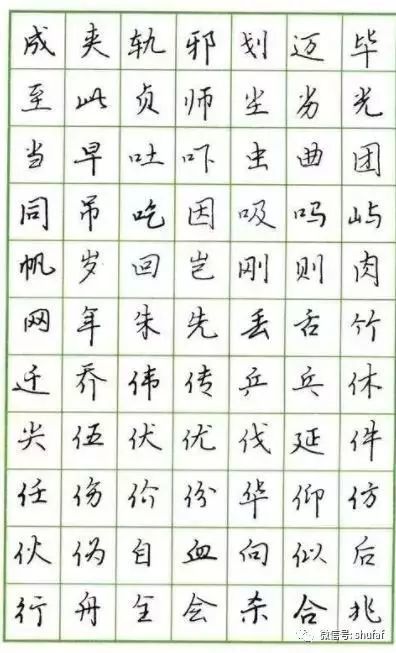 成夹轨邪划迈毕
至此贞师尘劣光
当早吐吓虫曲团
同吊吃因吸吗屿
帆岁回岂刚则肉
网年朱先丢舌竹
迁乔伟传乒乓休
尖伍伏优伐延件
任伤价份华仰仿
伙伪自血向似后
行舟全会杀合兆
微信号: shufaf